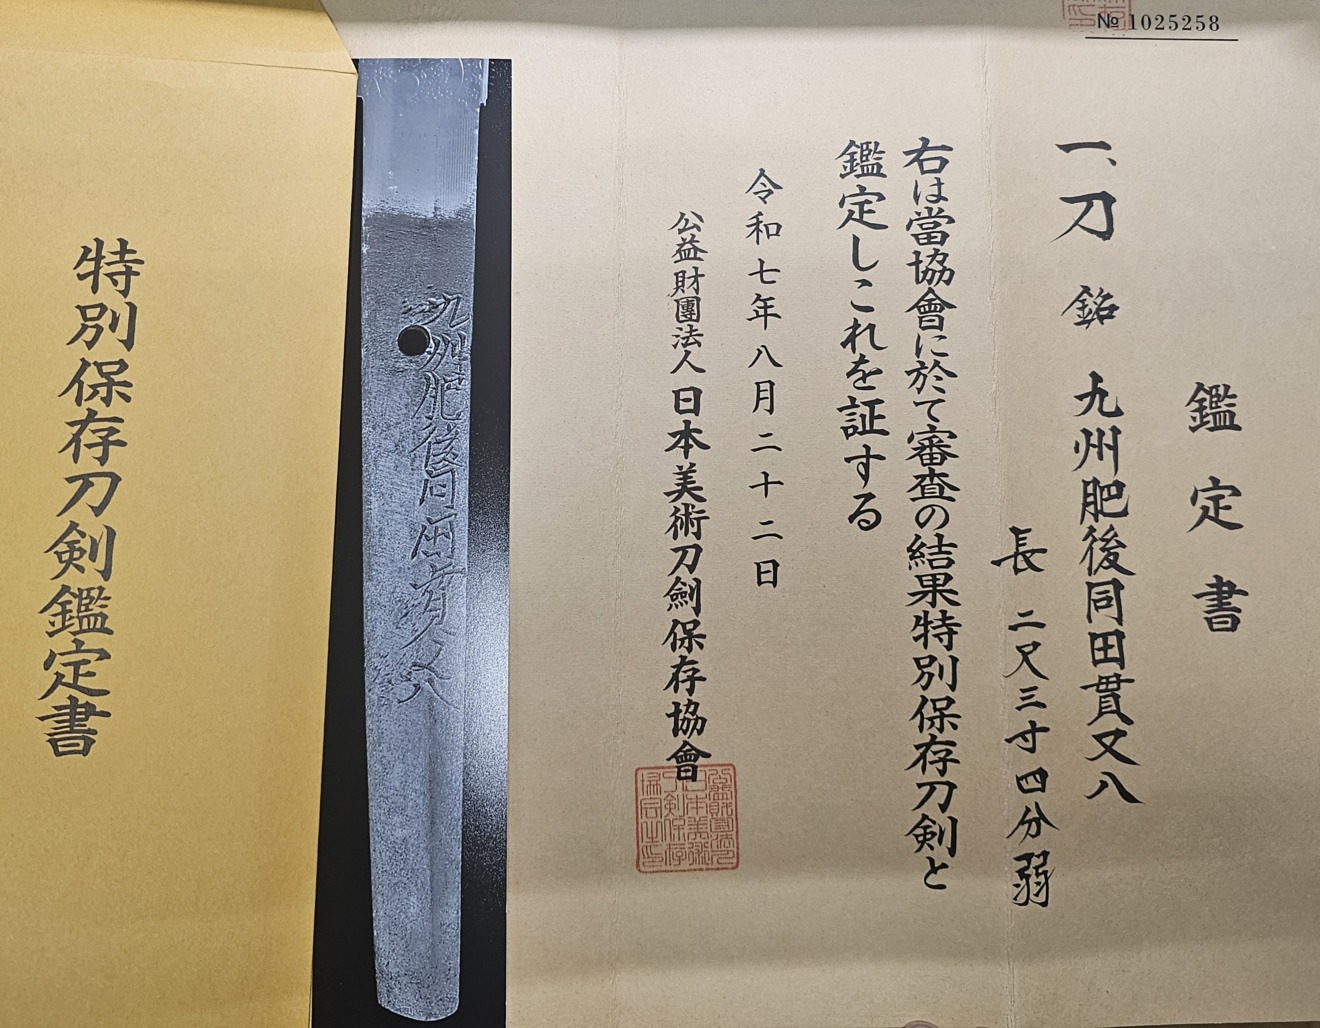 № 1025258
鑑定書
一、刀 銘 九州肥後同田貫又八
長 二尺三寸四分弱
右は當協會に於て審査の結果特別保存刀剣と
鑑定しこれを証する
令和七年八月二十二日
公益財團法人 日本美術刀劍保存協會
九州肥後同田貫又八
特別保存刀剣鑑定書